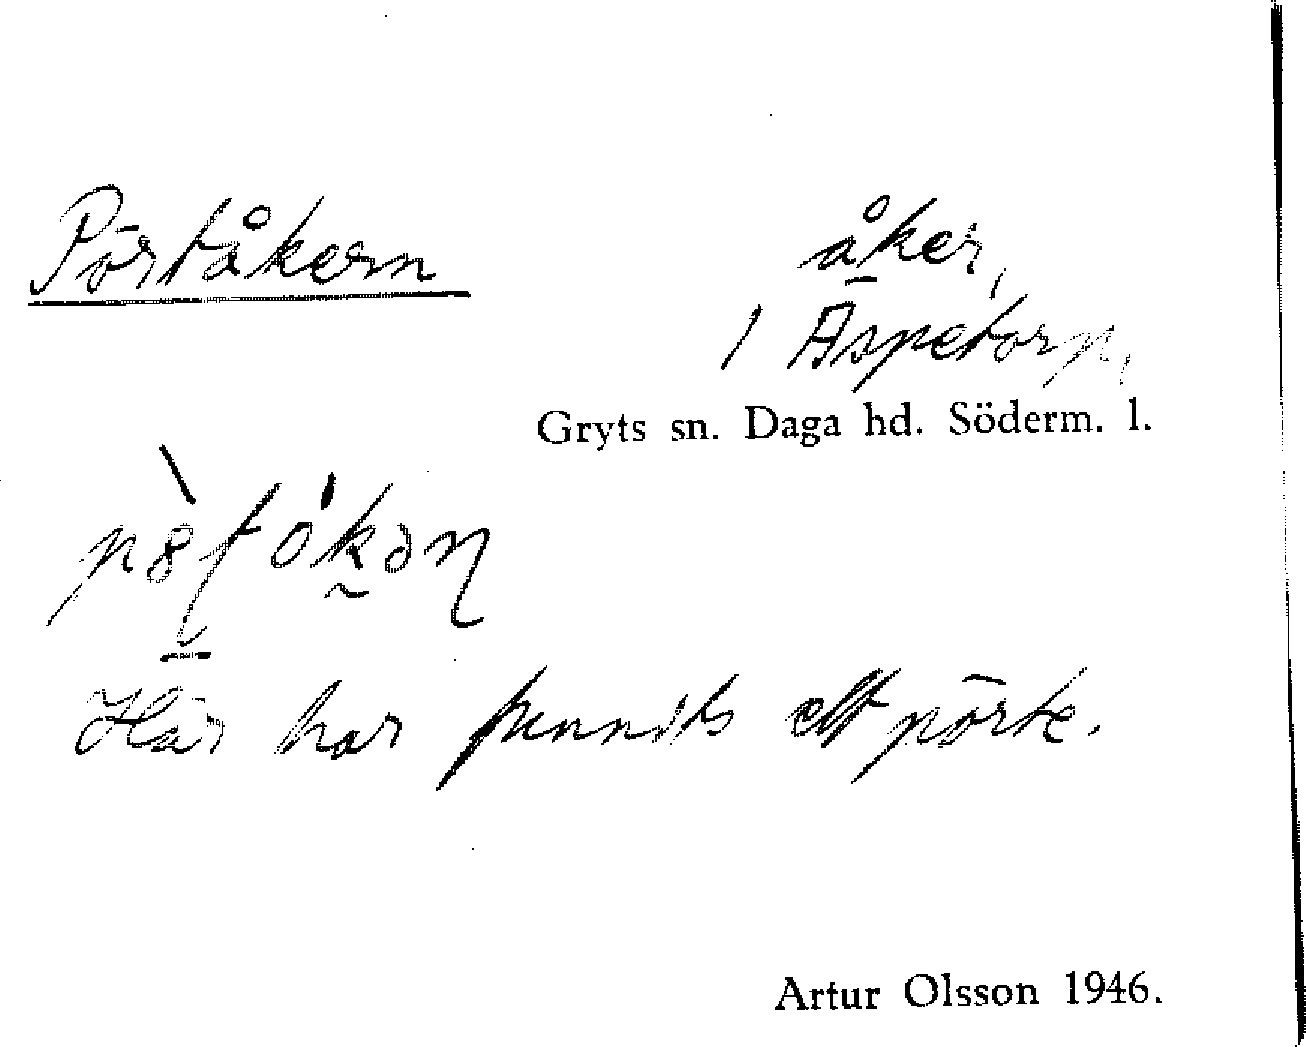 Pörtåkern
åker,
1 Äspetorp,
Gryts sn. Daga hd. Söderm. l.
Här har funnits ett pörte.
Artur Olsson 1946.